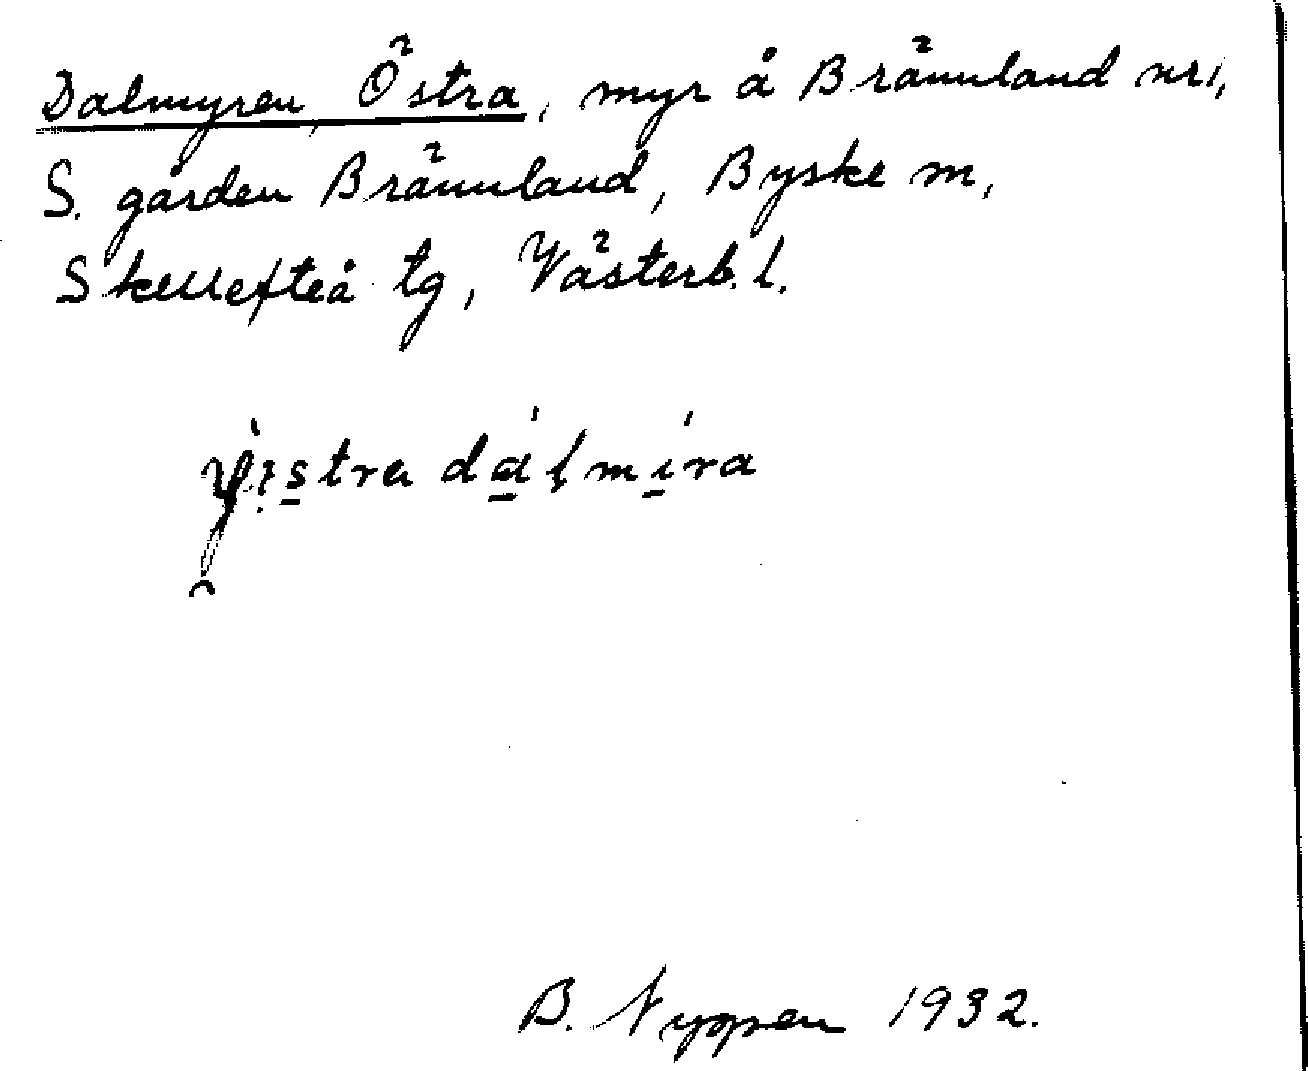 Dalmyren, Östra, myr å Brännland nr 1,
S. gården Brännland, Byske sn,
Skellefteå tg, Västerb. l.
dálmíra
B. Nyppen 1932.